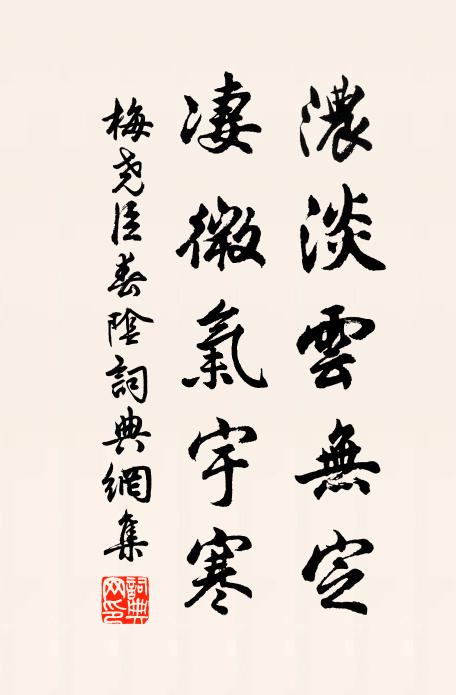 濃淡雲無定
凄微氣宇寒
梅堯臣春陰詞典網集
詞典網印